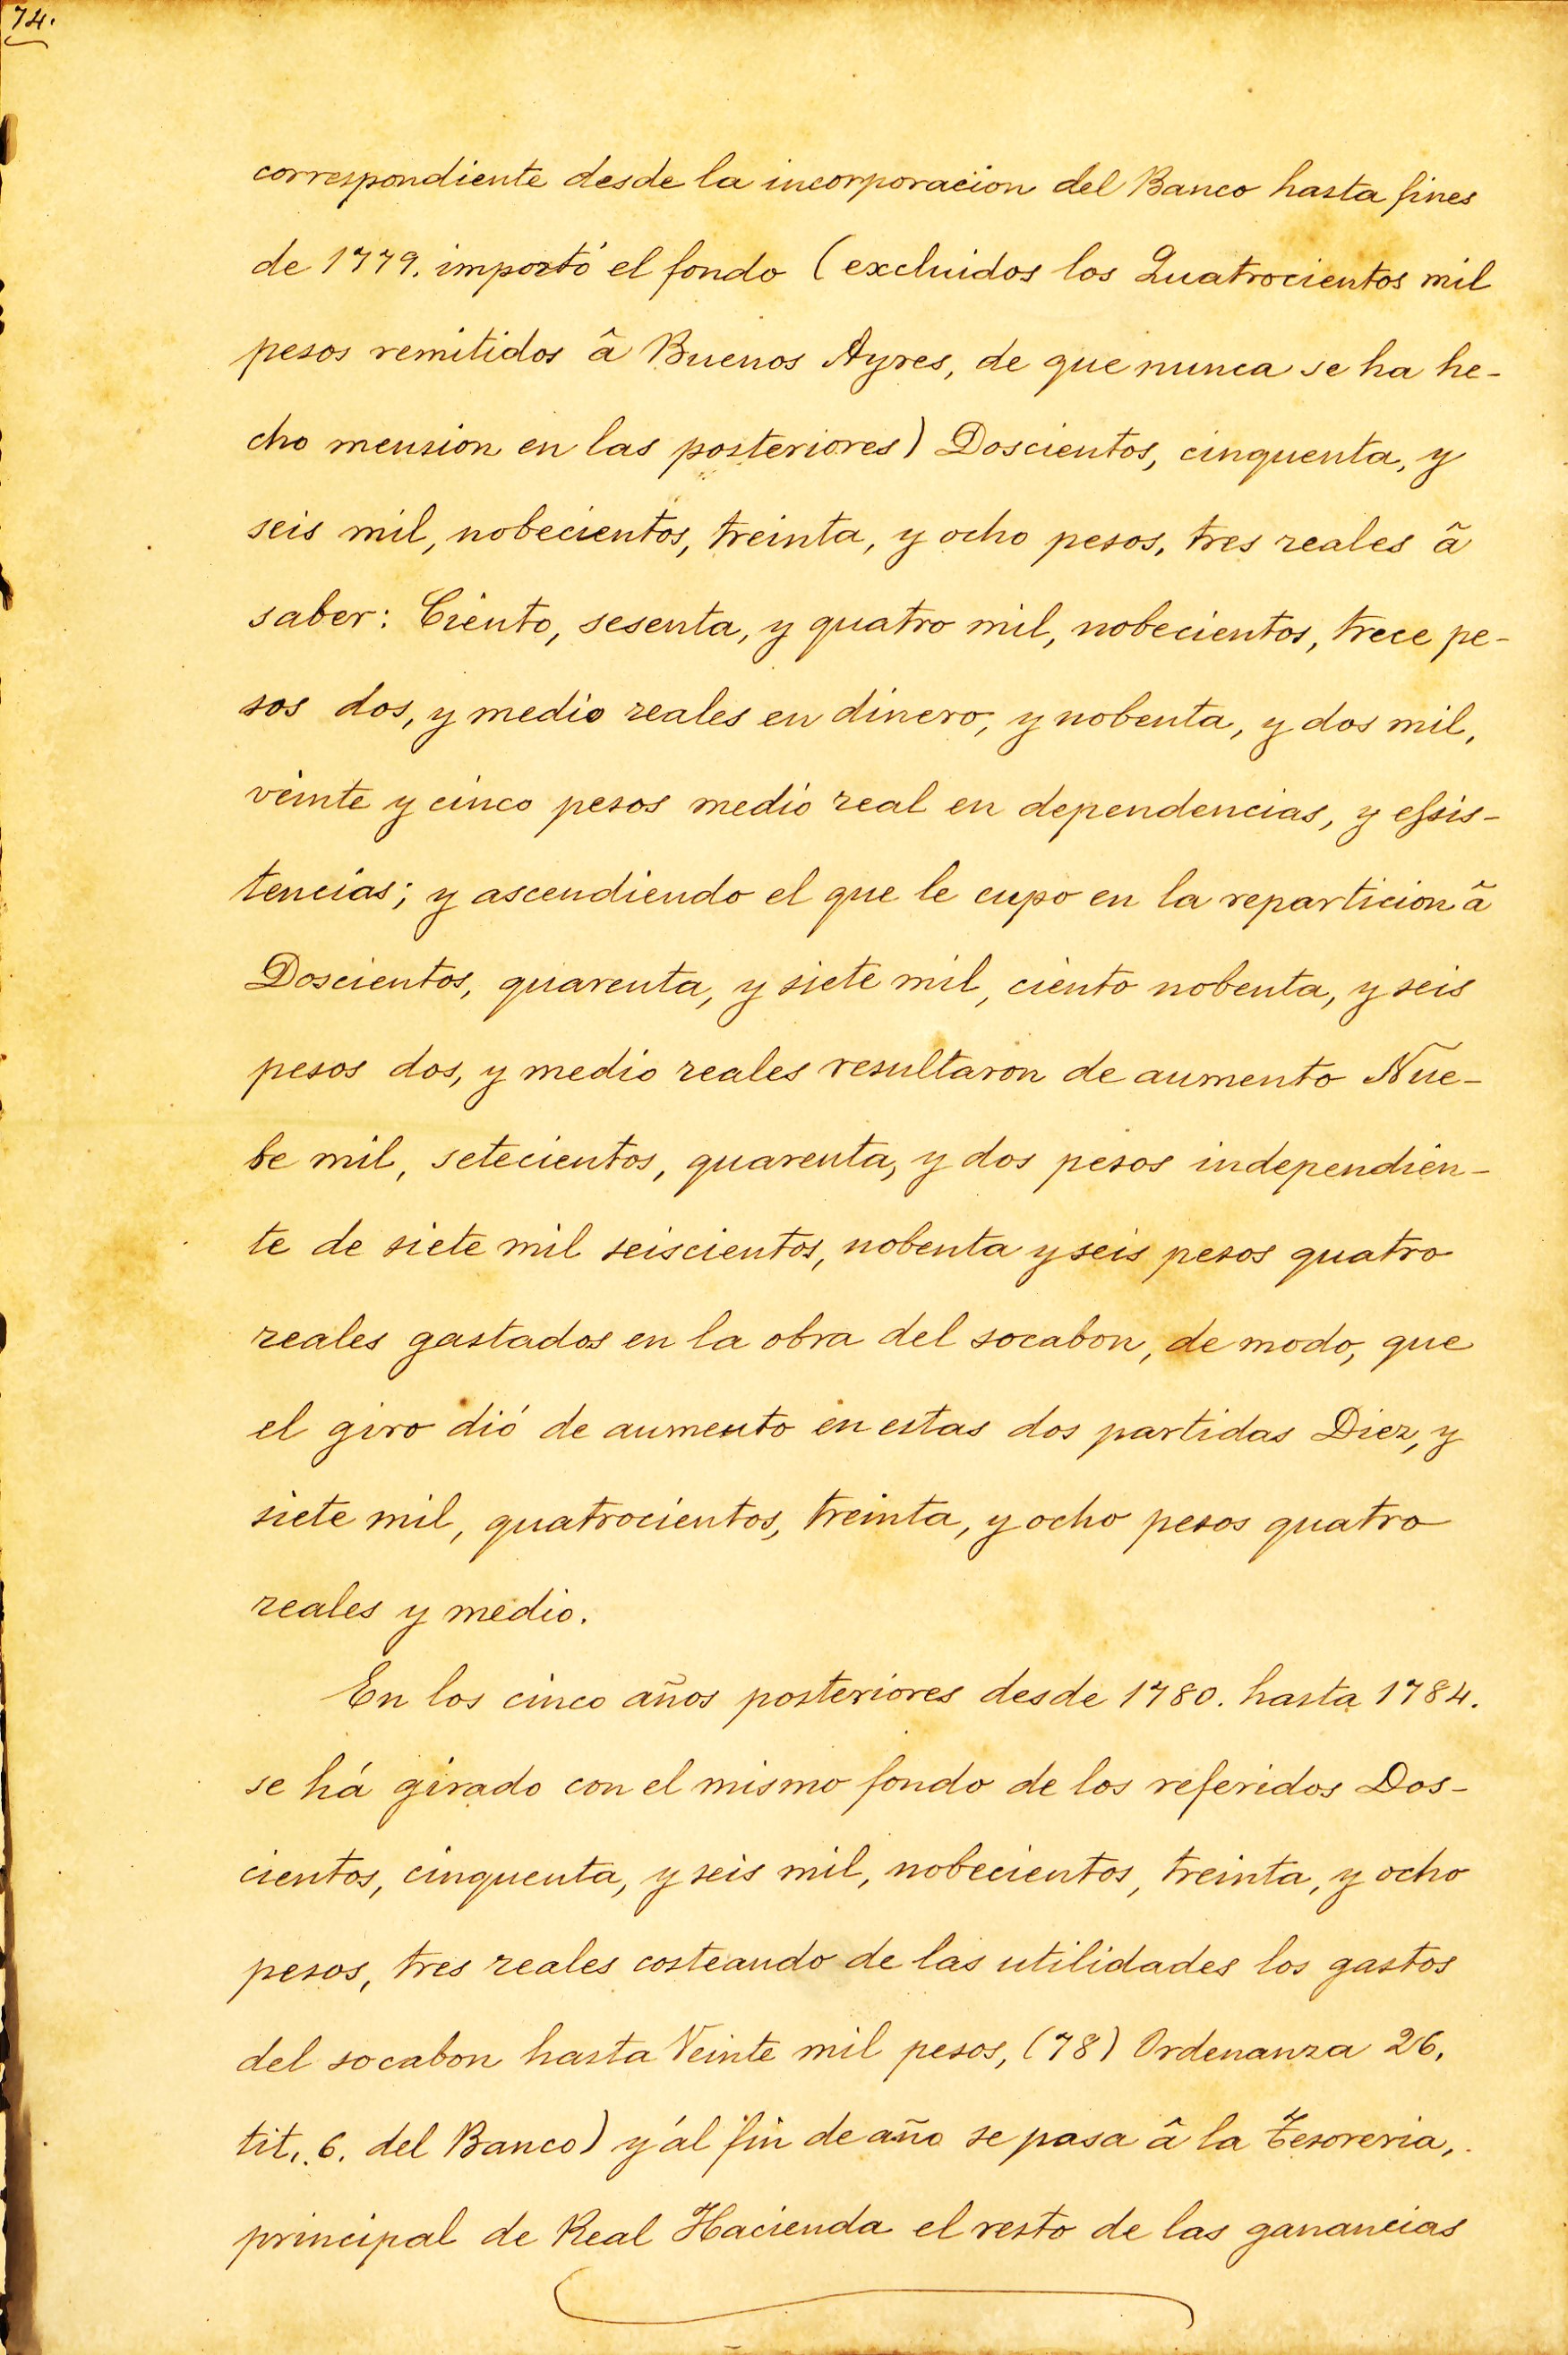 74.
correspondiente desde la incorporacion del Banco hasta fines
de 1779. importó el fondo (excluidos los Quatrocientos mil
pesos remitidos â Buenos Ayres, de que nunca se ha he-
cho mension en las posteriores) Doscientos, cinquenta, y
seis mil, nobecientos, treinta, y ocho pesos, tres reales ã
saber: Ciento, sesenta, y quatro mil, nobecientos, trece pe-
sos dos, y medio reales en dinero, y nobenta, y dos mil,
veinte y cinco pesos medio real en dependencias, y essis-
tencias; y ascendiendo el que le cupo en la reparticion ã
Doscientos, quarenta, y siete mil, ciento nobenta, y seis
pesos dos, y medio reales resultaron de aumento Nue-
be mil, setecientos, quarenta, y dos pesos independien-
te de siete mil seiscientos, nobenta y seis pesos quatro
reales gastados en la obra del socabon, de modo, que
el giro dió de aumento en estas dos partidas Diez, y
siete mil, quatrocientos, treinta, y ocho pesos quatro
reales y medio.
En los cinco años posteriores desde 1780. hasta 1784.
se há girado con el mismo fondo de los referidos Dos-
cientos, cinquenta, y seis mil, nobecientos, treinta, y ocho
pesos, tres reales costeando de las utilidades los gastos
del socabon hasta Veinte mil pesos, (78) Ordenanza 26,
tit. 6. del Banco) y ál fin de año se pasa â la Tesoreria,
principal de Real Hacienda el resto de las ganancias